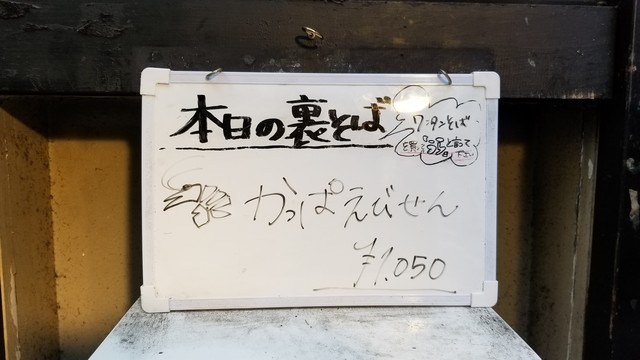 本日の裏そば
ワンタンそば
と言って
下さい
かっぱえびせん
¥1,050